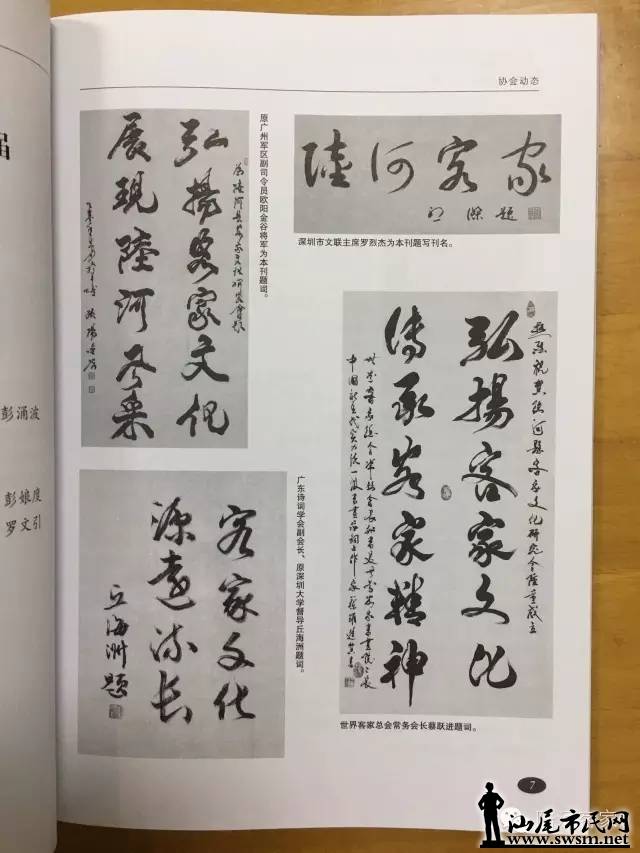 协会动态
弘揚客家文化
展現陸河风采
原广州军区副司令员欧阳金谷将军为本刊题词。
陸河客家
深圳市文联主席罗烈杰为本刊题写刊名。
热烈祝贺陸河县客家文化研究会隆重成立
弘揚客家文化
傳承客家精神
世界客家总会常务会长蔡跃进题词。
客家文化
源遠流长
丘海洲題
广东诗词学会副会长、原深圳大学督导丘海洲题词。
彭涌波
彭娘度
罗文引
7
汕尾市民网
www.swsm.net